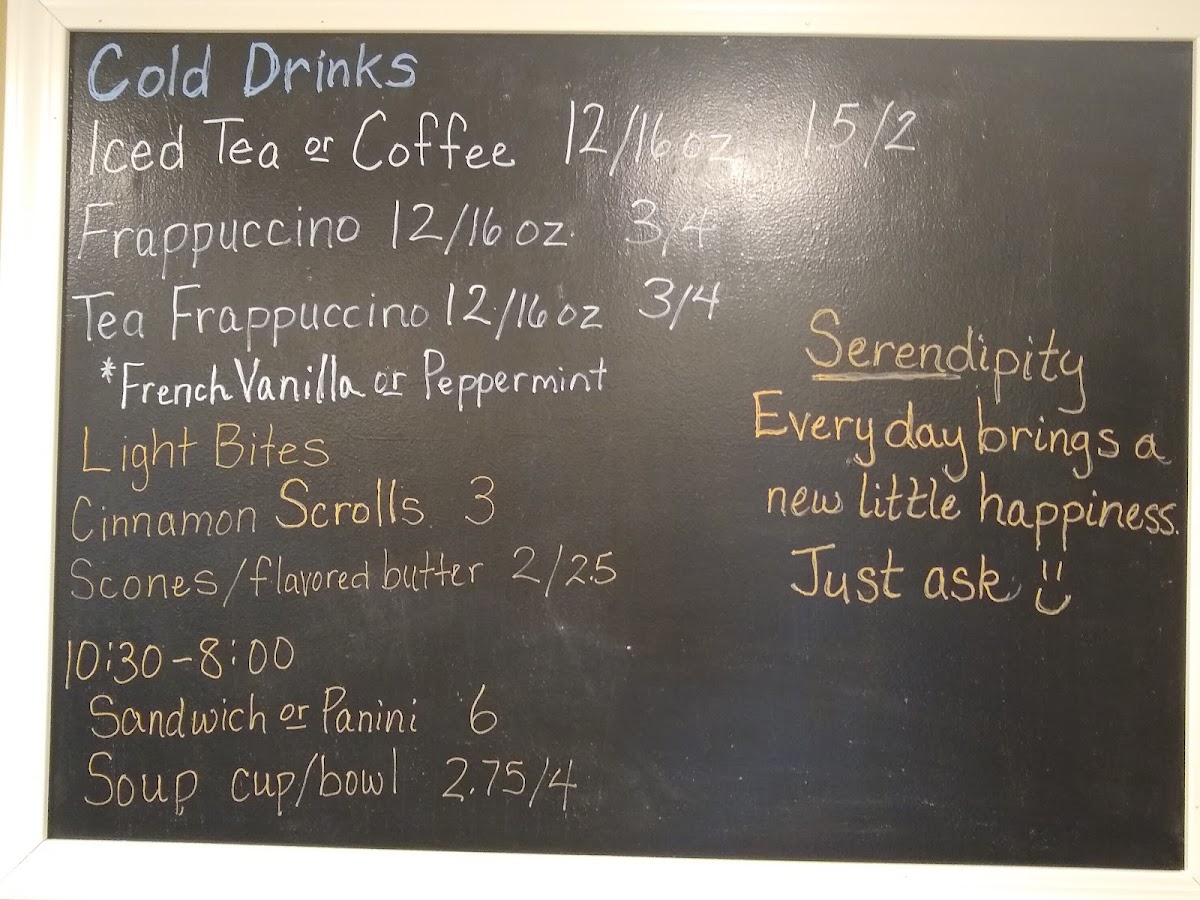 Cold Drinks
Iced Tea or Coffee 12/16 oz 1.5/2
Frappuccino 12/16 oz. 3/4
Tea Frappuccino 12/16 oz 3/4
*French Vanilla or Peppermint
Light Bites
Cinnamon Scrolls 3
Scones/flavored butter 2/2.5
10:30-8:00
Sandwich or Panini 6
Soup cup/bowl 2.75/4
Serendipity
Every day brings a
new little happiness.
Just ask